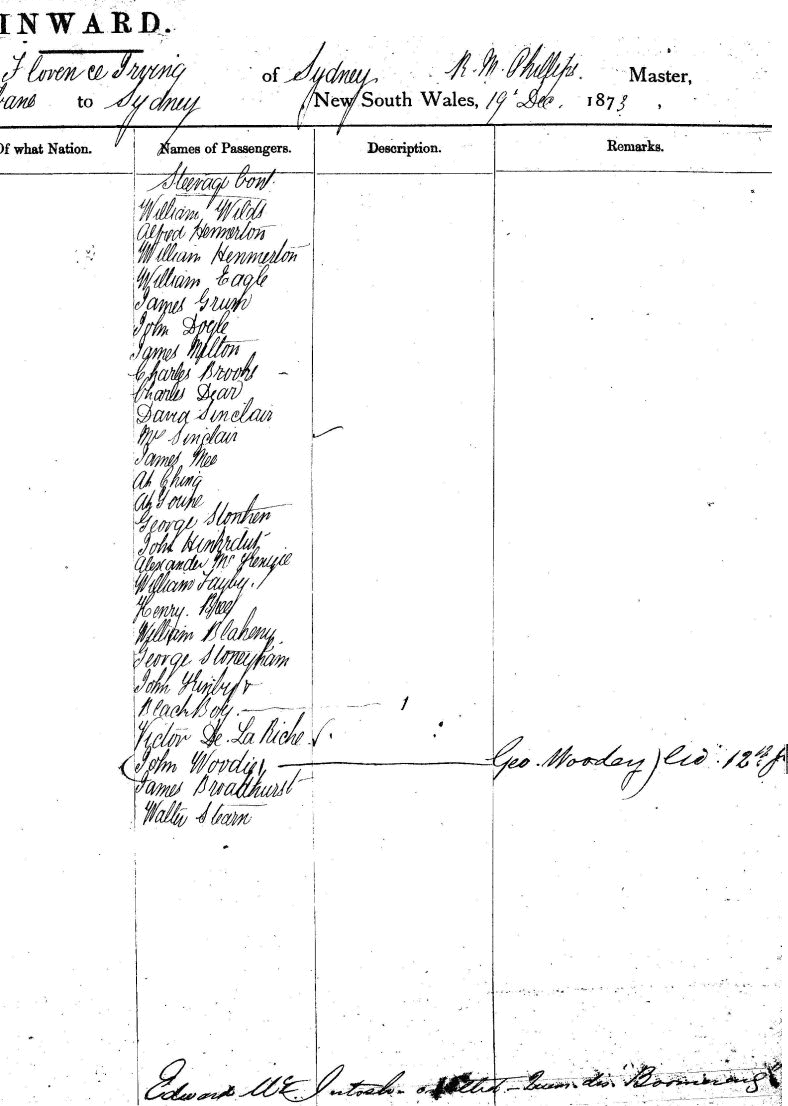 INWARD.
Florence Irving of Sydney R. M. Phillips. Master,
to Sydney New South Wales, 19 Dec. 1873,
Of what Nation. Names of Passengers. Description. Remarks.
Steerage Cont.
William Wilds
Alfred Henmerton
William Henmerton
William Eagle
James Grum
John Dogle
James Milton
Charles Brooks -
Charles Dear
David Sinclair
Mr Sinclair
James Mee
Ah Ching
Ah
George
John
Alexander McKenzie
William
Henry.
William Blaheny
George Stoneyham
John
Black Boy. 1
Victor De La Riche
(John Woodey Geo. Wooday) 12th
James Broadhurst
Walter Stearn
Edward Mc Intosh Boomerang